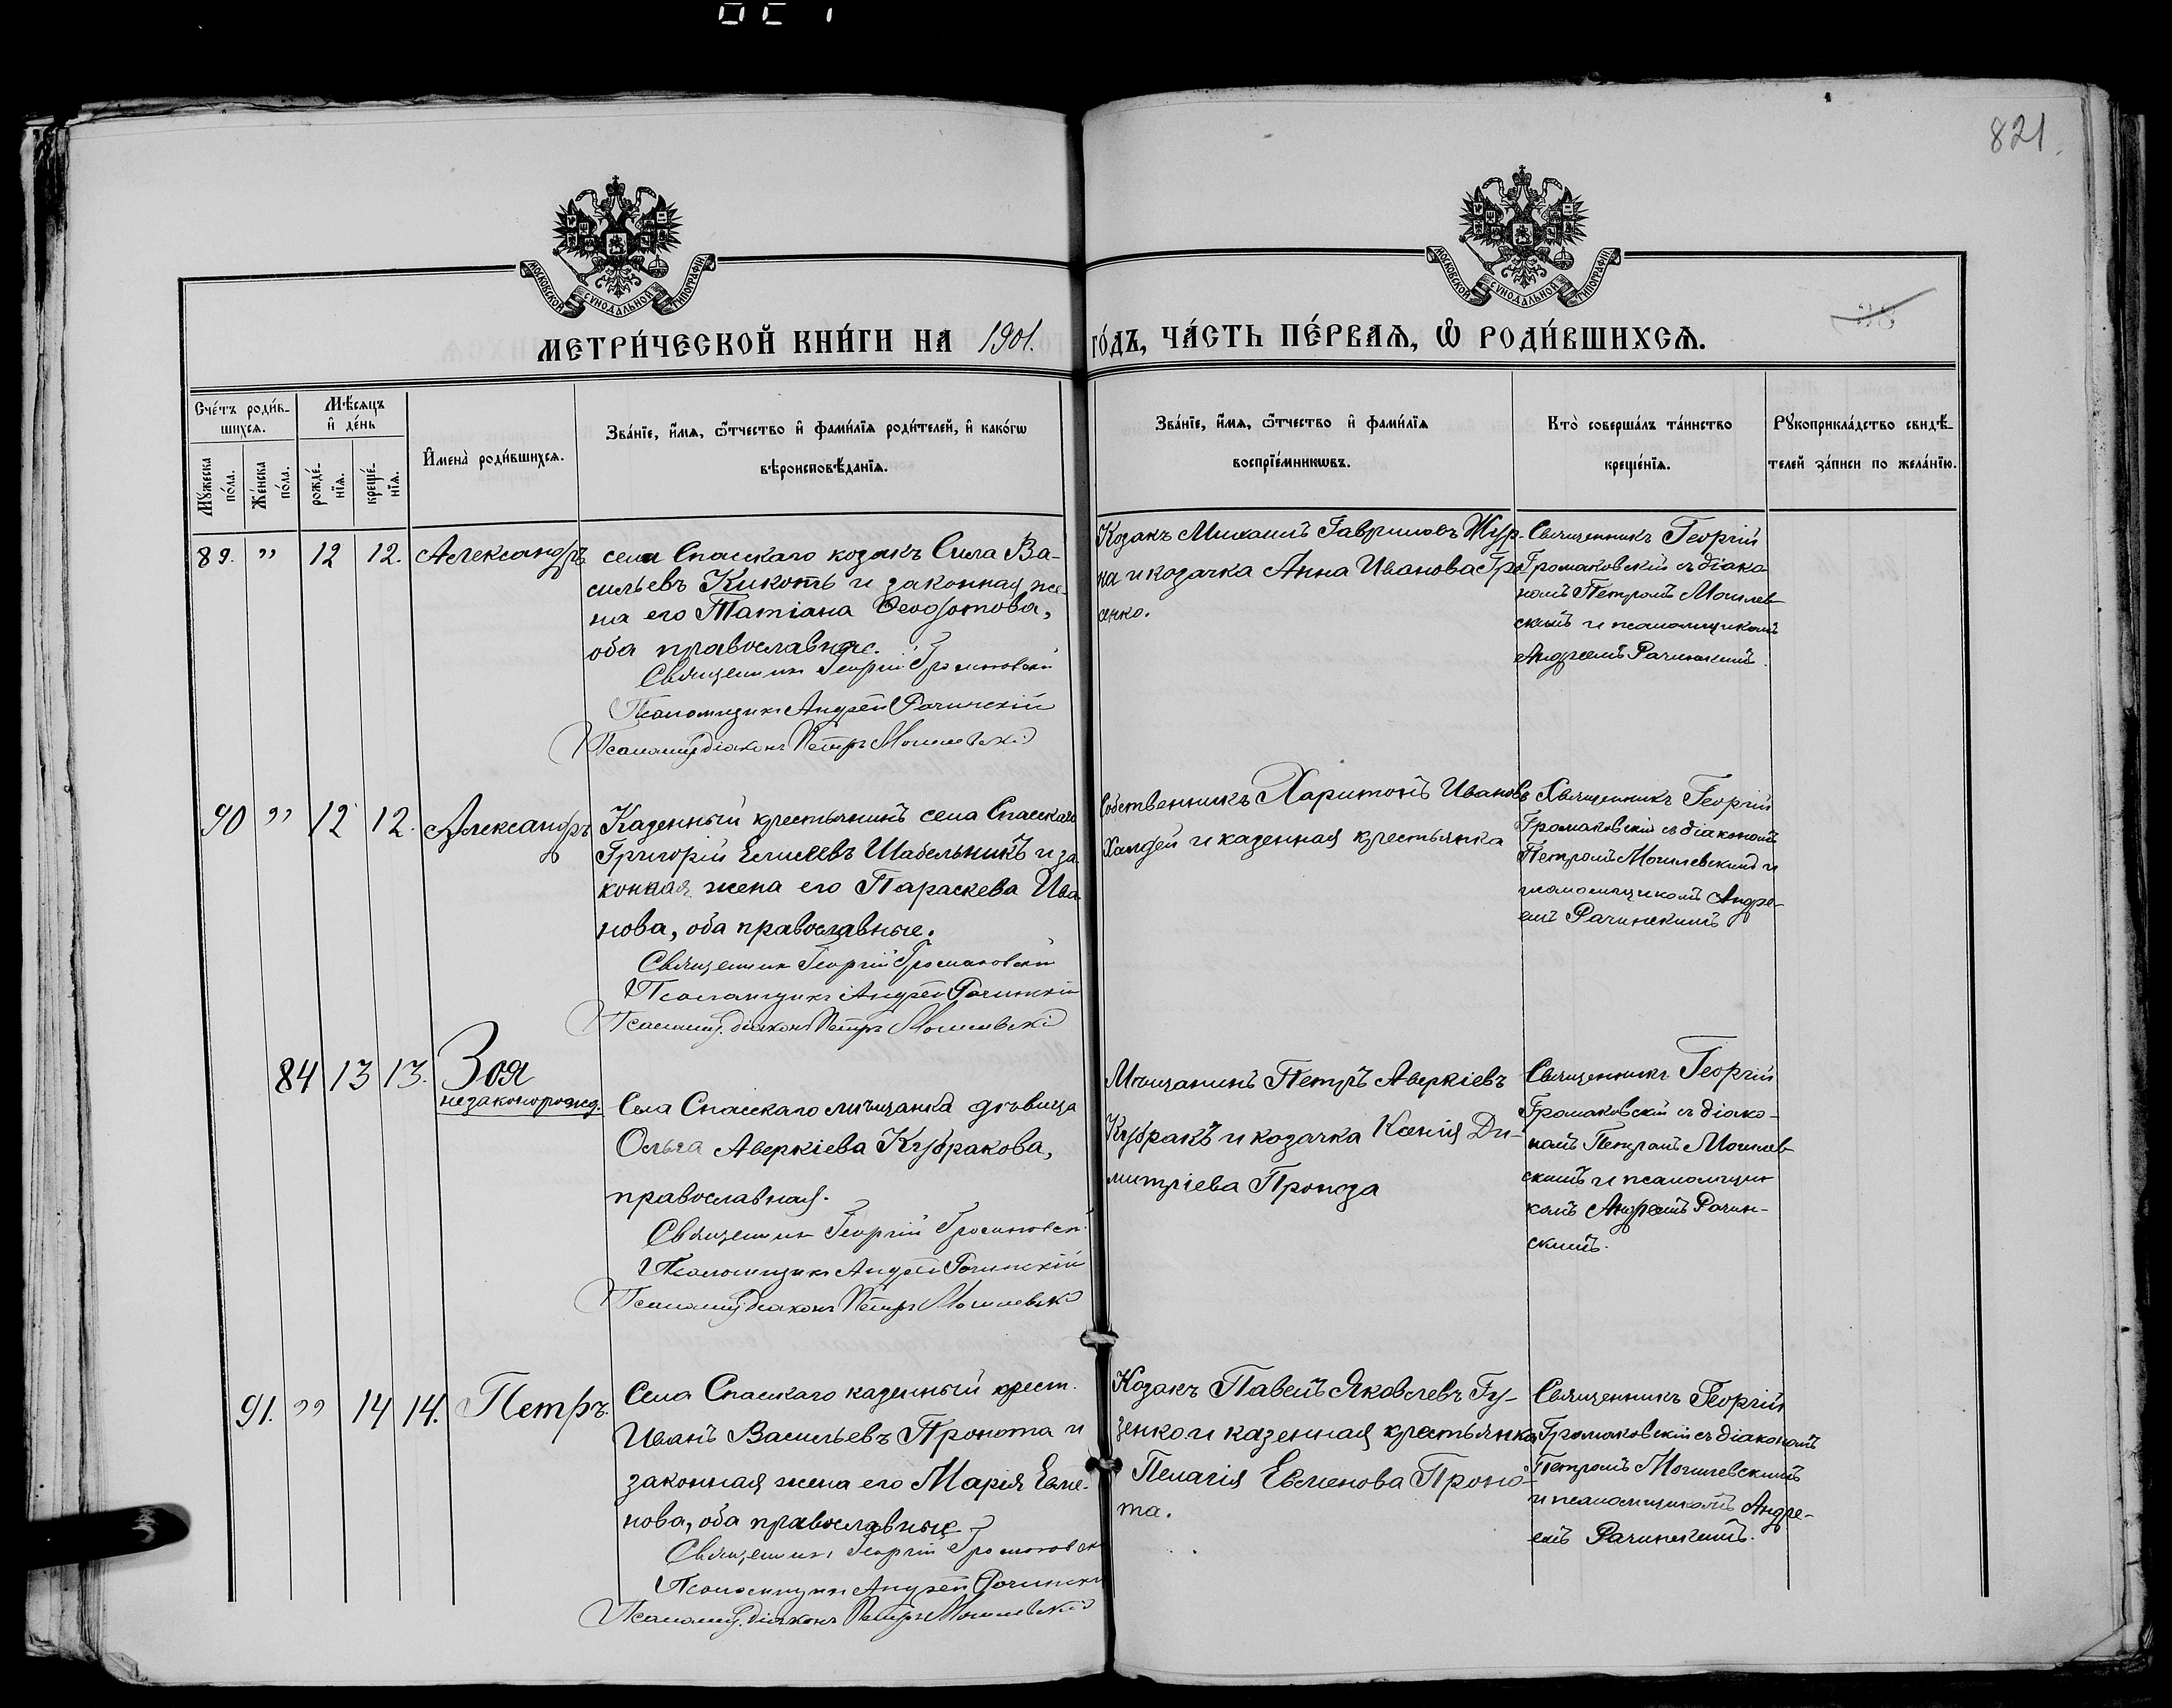 821.
МОСКОВСКОЙ СѴНОДАЛЬНОЙ ТИПОГРАФІИ
МОСКОВСКОЙ СѴНОДАЛЬНОЙ ТИПОГРАФІИ
МЕТРИ́ЧЕСКОЙ КНИ́ГИ НА 1901. ГО́ДЪ, ЧА́СТЬ ПЕ́РВАѦ, Ѡ҆ РОДИ́ВШИХСѦ.
Сче́тъ роди́в-
шихсѧ.
Мꙋ́жеска по́ла.
Же́нска по́ла.
Мѣ́сѧцъ и҆ де́нь
рожде́-
нїѧ.
креще́-
нїѧ.
И҆мена̀ роди́вшихсѧ.
Зва́нїе, и҆́мѧ, ѻ҆́тчество и҆ фами́лїѧ роди́телей, и҆ како́гѡ
вѣроисповѣ́данїѧ.
Зва́нїе, и҆́мѧ, ѻ҆́тчество и҆ фами́лїѧ
воспрїе́мникѡвъ.
Кто̀ соверша́лъ та́инство
креще́нїѧ.
Рꙋкоприкла́дство свидѣ́-
телей за́писи по жела́нїю.
89. " 12 12. Александръ
села Спасскаго козакъ Сила Ва-
сильевъ Кикоть и законная же-
на его Татіана Ѳеодотова,
оба православные.
Священник Георгій Громаковскій
Псаломщикъ Андрей Рачинскій
Псаломщ. діаконъ Петръ Могилевскій
Козакъ Михаилъ Гавриловъ Жур-
на и козачка Анна Иванова
енко.
Священникъ Георгій
Громаковскій съ діако-
номъ Петромъ Могилев-
скимъ и псаломщикомъ
Андреемъ Рачинскимъ.
90 " 12 12. Александръ
Казенный крестьянинъ села Спасскаго
Григорій Елисеевъ Шабельникъ и за-
конная жена его Параскева Ива-
нова, оба православные.
Священник Георгій Громаковскій
Псаломщикъ Андрей Рачинскій
Псаломщ. діаконъ Петръ Могилевскій
Собственникъ Харитонъ Ивановъ
и казенная крестьянка
Священникъ Георгій
Громаковскій съ діакономъ
Петромъ Могилевскимъ и
псаломщикомъ Андре-
емъ Рачинскимъ
84 13 13. Зоя
незаконорожд.
Села Спасскаго мѣщанка дѣвица
Ольга Аверкіева Кубракова,
православная.
Священник Георгій Громаковскій
Псаломщикъ Андрей Рачинскій
Псаломщ. діаконъ Петръ Могилевскій
Мѣщанинъ Петръ Аверкіевъ
Кубракъ и козачка Ксенія Ди-
митріева
Священникъ Георгій
Громаковскій съ діако-
номъ Петромъ Могилев-
скимъ и псаломщи-
комъ Андреемъ Рачин-
скимъ.
91. " 14 14. Петръ.
Села Спасскаго казенный крест.
Иванъ Васильевъ Пронота и
законная жена его Марія Евме-
нова, оба православные
Священникъ Георгій Громаковскій
Псаломщикъ Андрей Рачинскій
Псаломщ. діаконъ Петръ Могилевскій
Козакъ Павелъ Яковлевъ Гу-
ценко и казенная крестьянка
Пелагія Евменова Проно-
та.
Священникъ Георгій
Громаковскій съ діакономъ
Петромъ Могилевскимъ
и псаломщикомъ Андре-
емъ Рачинскимъ.